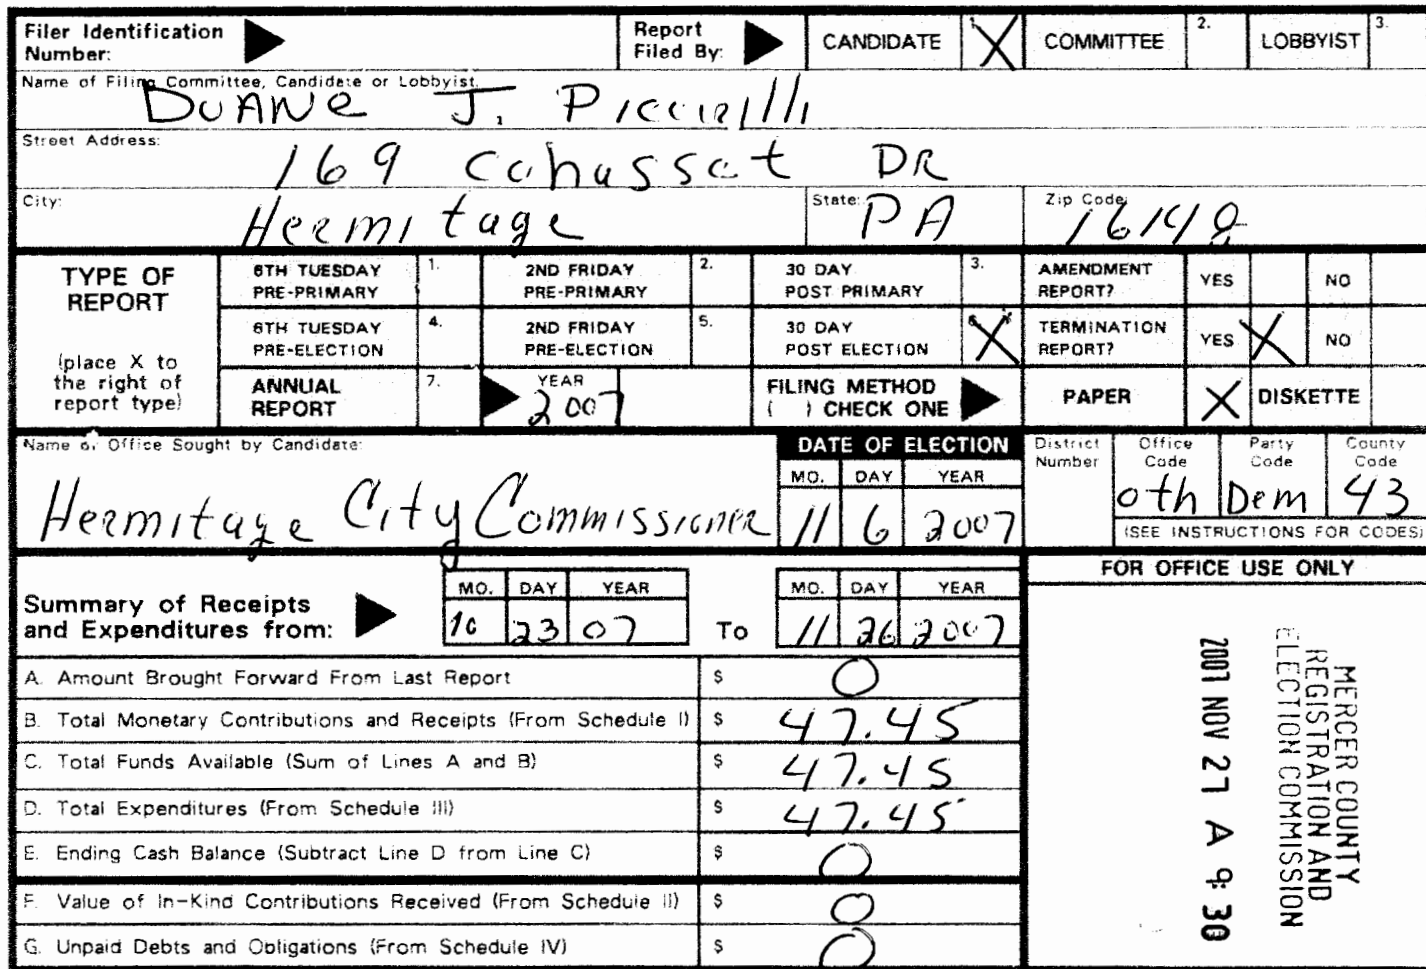 Filer Identification Number: Report Filed By: CANDIDATE 1. X COMMITTEE 2. LOBBYIST 3.
Name of Filing Committee, Candidate or Lobbyist:
Duane J. Piccirilli
Street Address: 169 Cohasset DR
City: Hermitage State: PA Zip Code: 16148
TYPE OF REPORT
(place X to the right of report type)
6TH TUESDAY PRE-PRIMARY 1. 2ND FRIDAY PRE-PRIMARY 2. 30 DAY POST PRIMARY 3. AMENDMENT REPORT? YES NO
6TH TUESDAY PRE-ELECTION 4. 2ND FRIDAY PRE-ELECTION 5. 30 DAY POST ELECTION X TERMINATION REPORT? YES X NO
ANNUAL REPORT 7. YEAR 2007 FILING METHOD ( ) CHECK ONE PAPER X DISKETTE
Name of Office Sought by Candidate:
Hermitage City Commissioner
DATE OF ELECTION
MO. DAY YEAR
11 6 2007
District Number Office Code Party Code County Code
oth Dem 43
(SEE INSTRUCTIONS FOR CODES)
Summary of Receipts and Expenditures from:
MO. DAY YEAR
10 23 07
To
MO. DAY YEAR
11 26 2007
FOR OFFICE USE ONLY
A. Amount Brought Forward From Last Report $ 0
B. Total Monetary Contributions and Receipts (From Schedule I) $ 47.45
C. Total Funds Available (Sum of Lines A and B) $ 47.45
D. Total Expenditures (From Schedule III) $ 47.45
E. Ending Cash Balance (Subtract Line D from Line C) $ 0
F. Value of In-Kind Contributions Received (From Schedule II) $ 0
G. Unpaid Debts and Obligations (From Schedule IV) $ 0
MERCER COUNTY
REGISTRATION AND
ELECTION COMMISSION
2007 NOV 27 A 9: 30